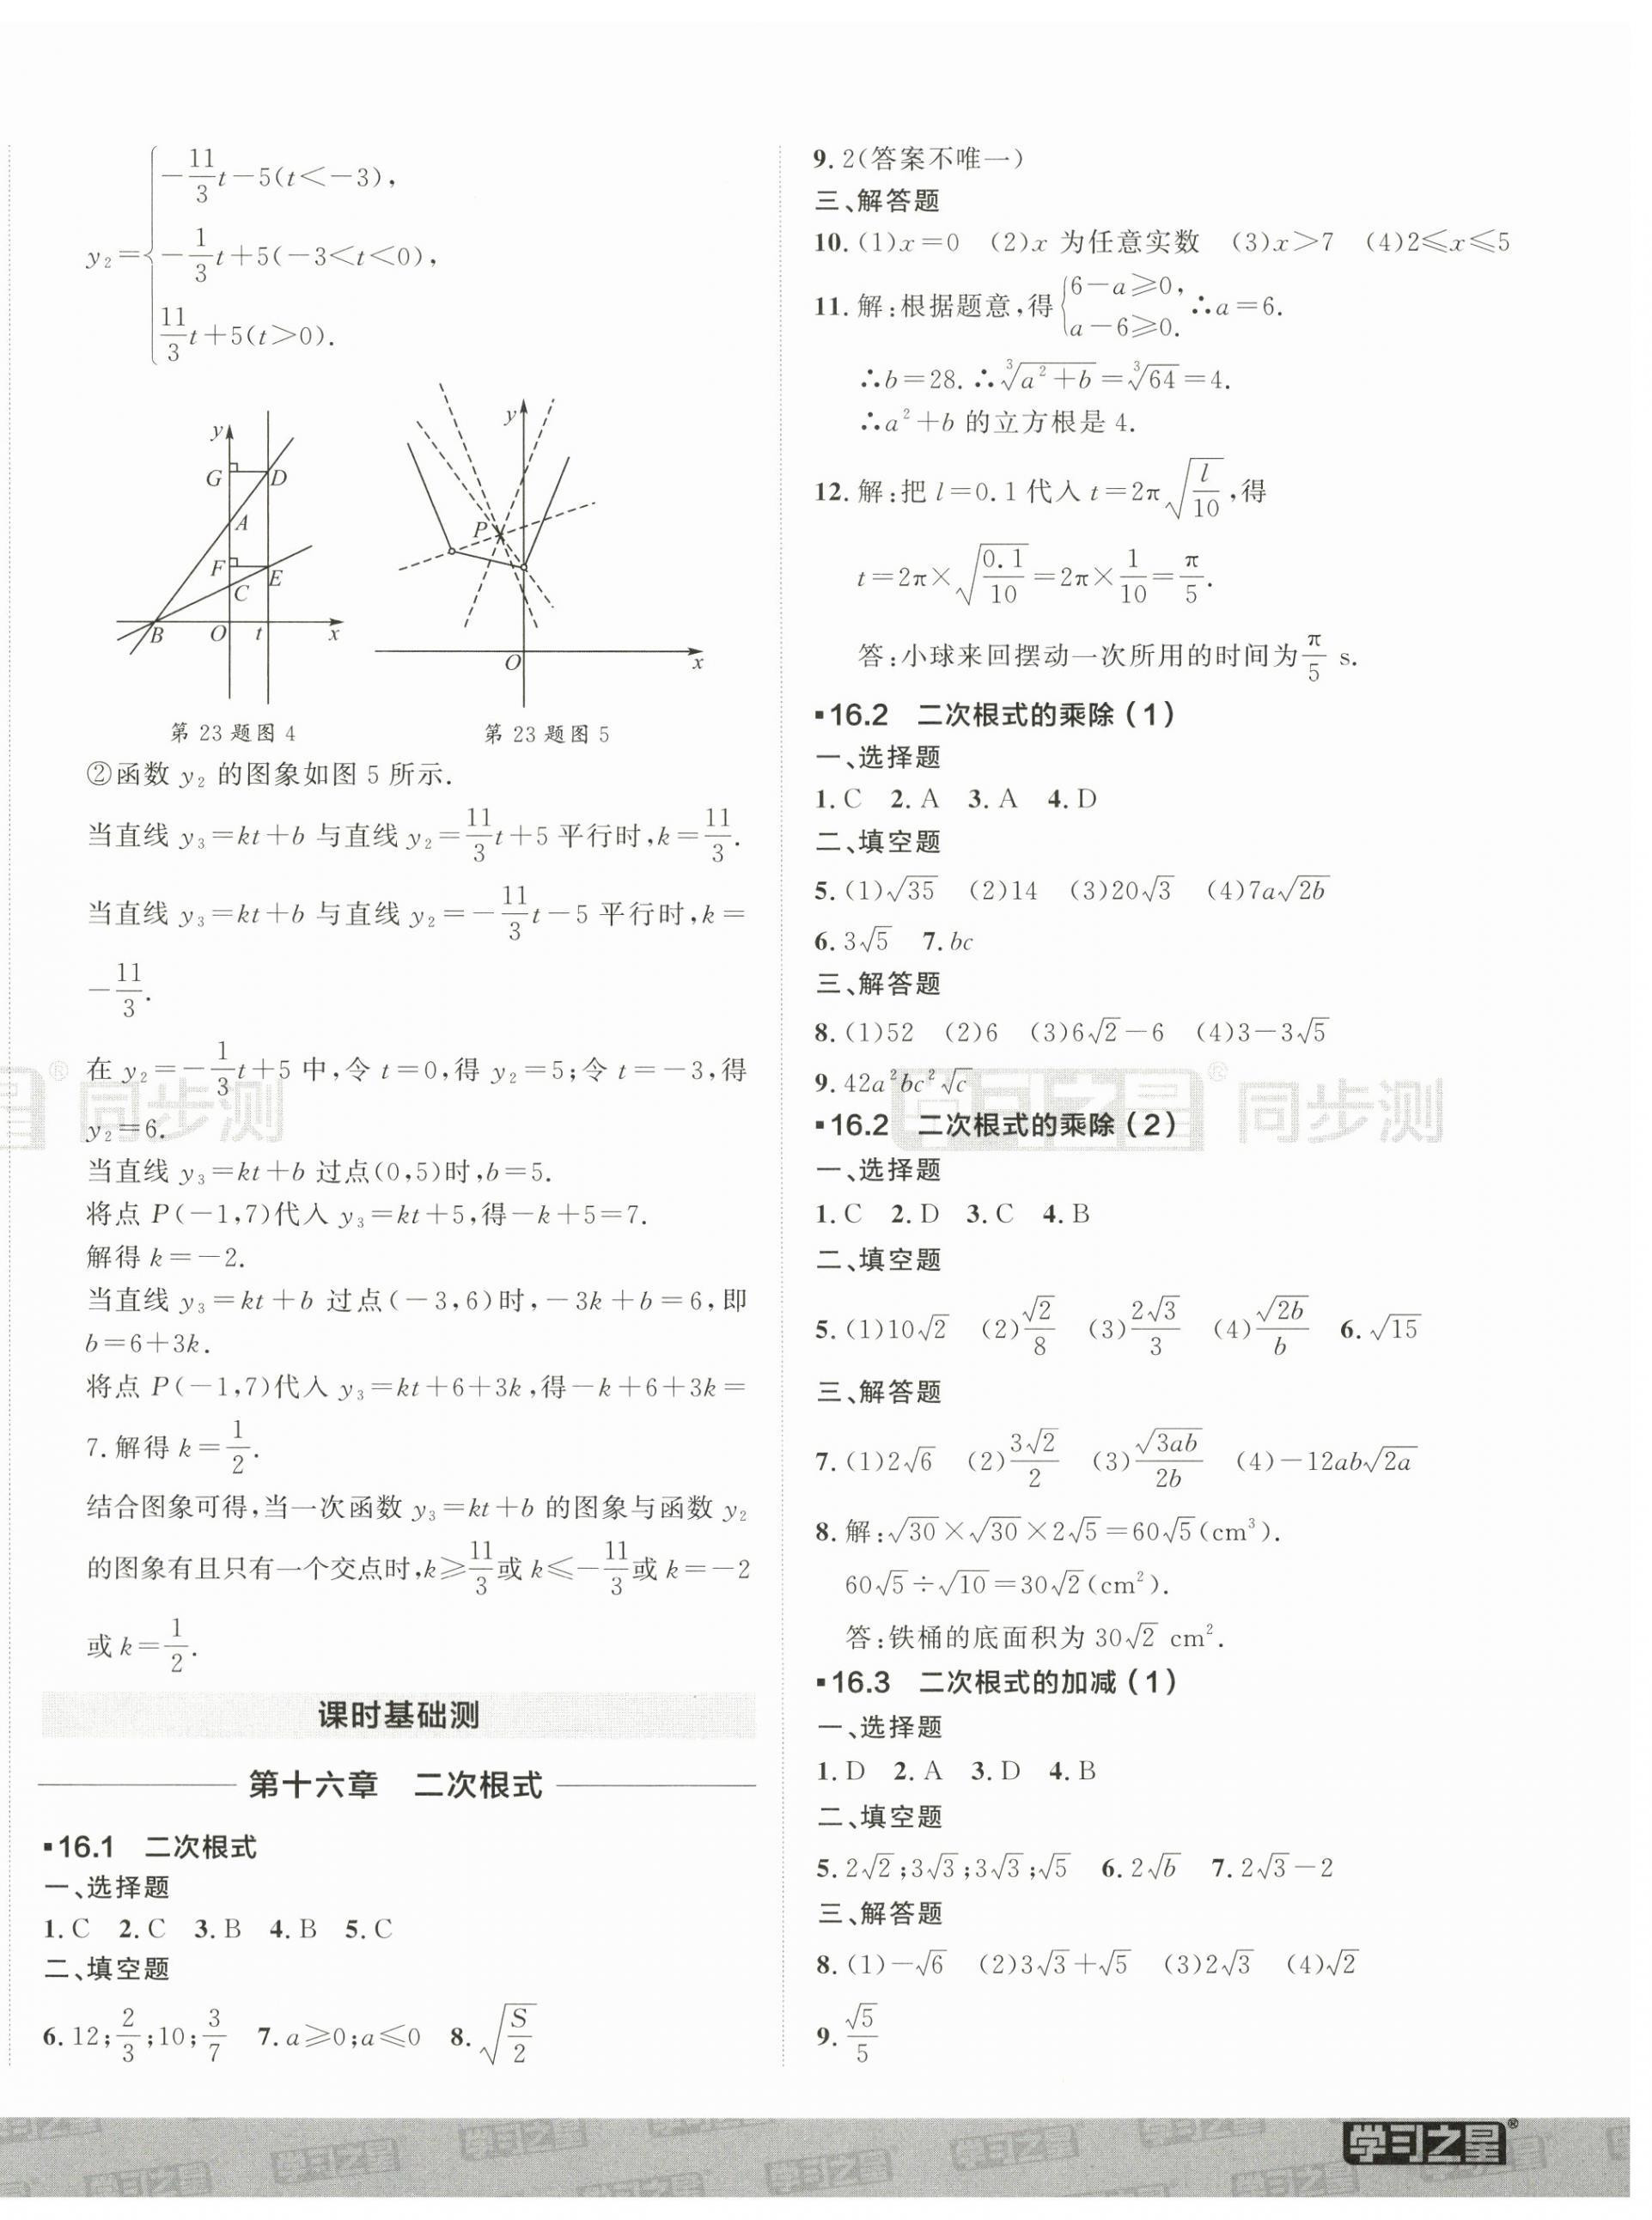 y₂=
-11/3t-5(t<-3),
-1/3t+5(-3<t<0),
11/3t+5(t>0).
y
G
D
A
F
E
C
B
O
t
x
第 23 题图 4
y
P
O
x
第 23 题图 5
②函数 y₂ 的图象如图 5 所示.
当直线 y₃=kt+b 与直线 y₂=11/3t+5 平行时,k=11/3.
当直线 y₃=kt+b 与直线 y₂=-11/3t-5 平行时,k=
-11/3.
在 y₂=-1/3t+5 中,令 t=0,得 y₂=5;令 t=-3,得
y₂=6.
当直线 y₃=kt+b 过点(0,5)时,b=5.
将点 P(-1,7)代入 y₃=kt+5,得-k+5=7.
解得 k=-2.
当直线 y₃=kt+b 过点(-3,6)时,-3k+b=6,即
b=6+3k.
将点 P(-1,7)代入 y₃=kt+6+3k,得-k+6+3k=
7.解得 k=1/2.
结合图象可得,当一次函数 y₃=kt+b 的图象与函数 y₂
的图象有且只有一个交点时,k≥11/3或 k≤-11/3或 k=-2
或 k=1/2.
课时基础测
第十六章 二次根式
▪16.1 二次根式
一、选择题
1.C 2.C 3.B 4.B 5.C
二、填空题
6.12;2/3;10;3/7 7.a≥0;a≤0 8.√(S/2)
9.2(答案不唯一)
三、解答题
10.(1)x=0 (2)x 为任意实数 (3)x>7 (4)2≤x≤5
11.解:根据题意,得{6-a≥0, a-6≥0. ∴a=6.
∴b=28.∴∛(a²+b)=∛64=4.
∴a²+b 的立方根是 4.
12.解:把 l=0.1 代入 t=2π√(l/10),得
t=2π×√(0.1/10)=2π×1/10=π/5.
答:小球来回摆动一次所用的时间为π/5 s.
▪16.2 二次根式的乘除(1)
一、选择题
1.C 2.A 3.A 4.D
二、填空题
5.(1)√35 (2)14 (3)20√3 (4)7a√(2b)
6.3√5 7.bc
三、解答题
8.(1)52 (2)6 (3)6√2-6 (4)3-3√5
9.42a²bc²√c
▪16.2 二次根式的乘除(2)
一、选择题
1.C 2.D 3.C 4.B
二、填空题
5.(1)10√2 (2)√2/8 (3)2√3/3 (4)√(2b)/b 6.√15
三、解答题
7.(1)2√6 (2)3√2/2 (3)√(3ab)/2b (4)-12ab√(2a)
8.解:√30×√30×2√5=60√5(cm³).
60√5÷√10=30√2(cm²).
答:铁桶的底面积为 30√2 cm².
▪16.3 二次根式的加减(1)
一、选择题
1.D 2.A 3.D 4.B
二、填空题
5.2√2;3√3;3√3;√5 6.2√b 7.2√3-2
三、解答题
8.(1)-√6 (2)3√3+√5 (3)2√3 (4)√2
9.√5/5
星® 同步测
学习之星® 同步测
学习之星®